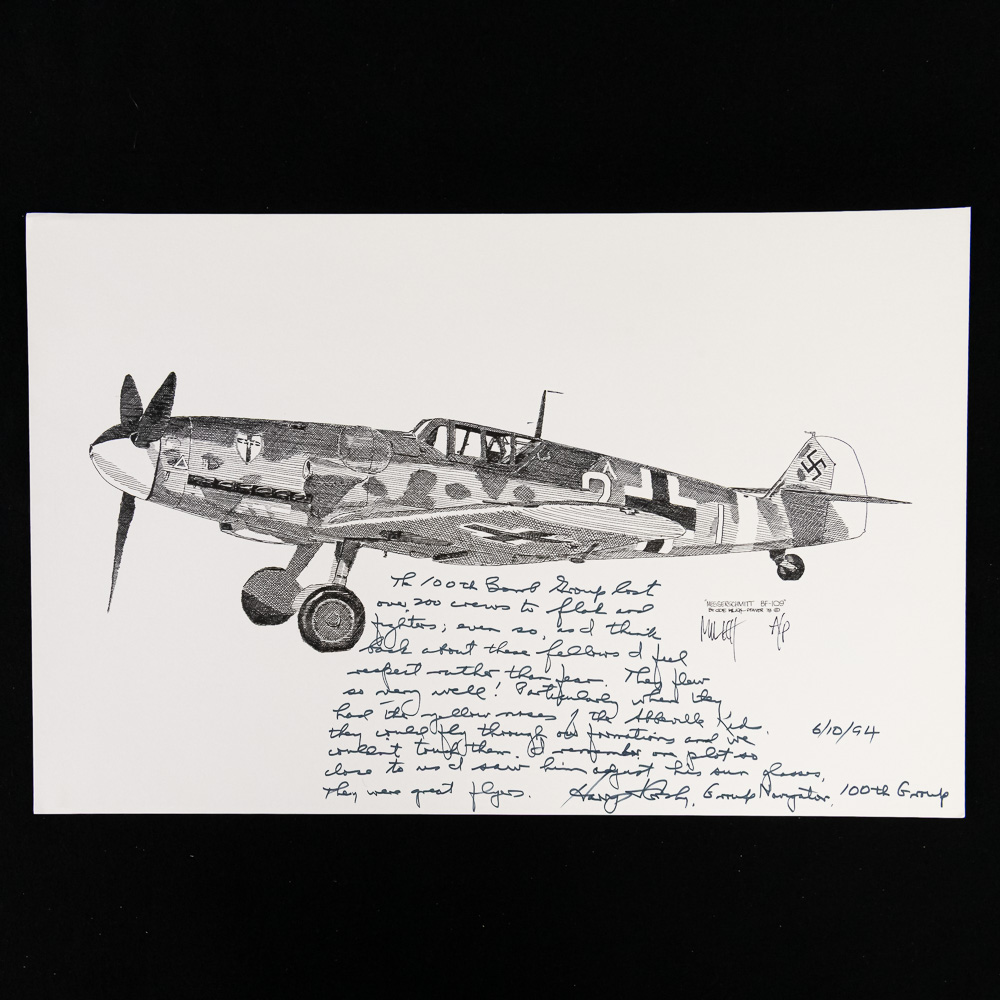 2
"MESSERSCHMITT BF-109"
A/p
The 100th Bomb Group lost
over 200 crews to flak and
fighters; even so, as I think
back about these fellows I feel
respect rather than fear. They flew
so very well! Particularly when they
had the yellow noses of the Abbeville Kids.
they could fly through our formations and we
couldn't touch them. I remember one pilot so
close to us I saw him adjust his sun glasses.
They were great flyers. Harry Crosby, Group Navigator, 100th Group
6/10/94